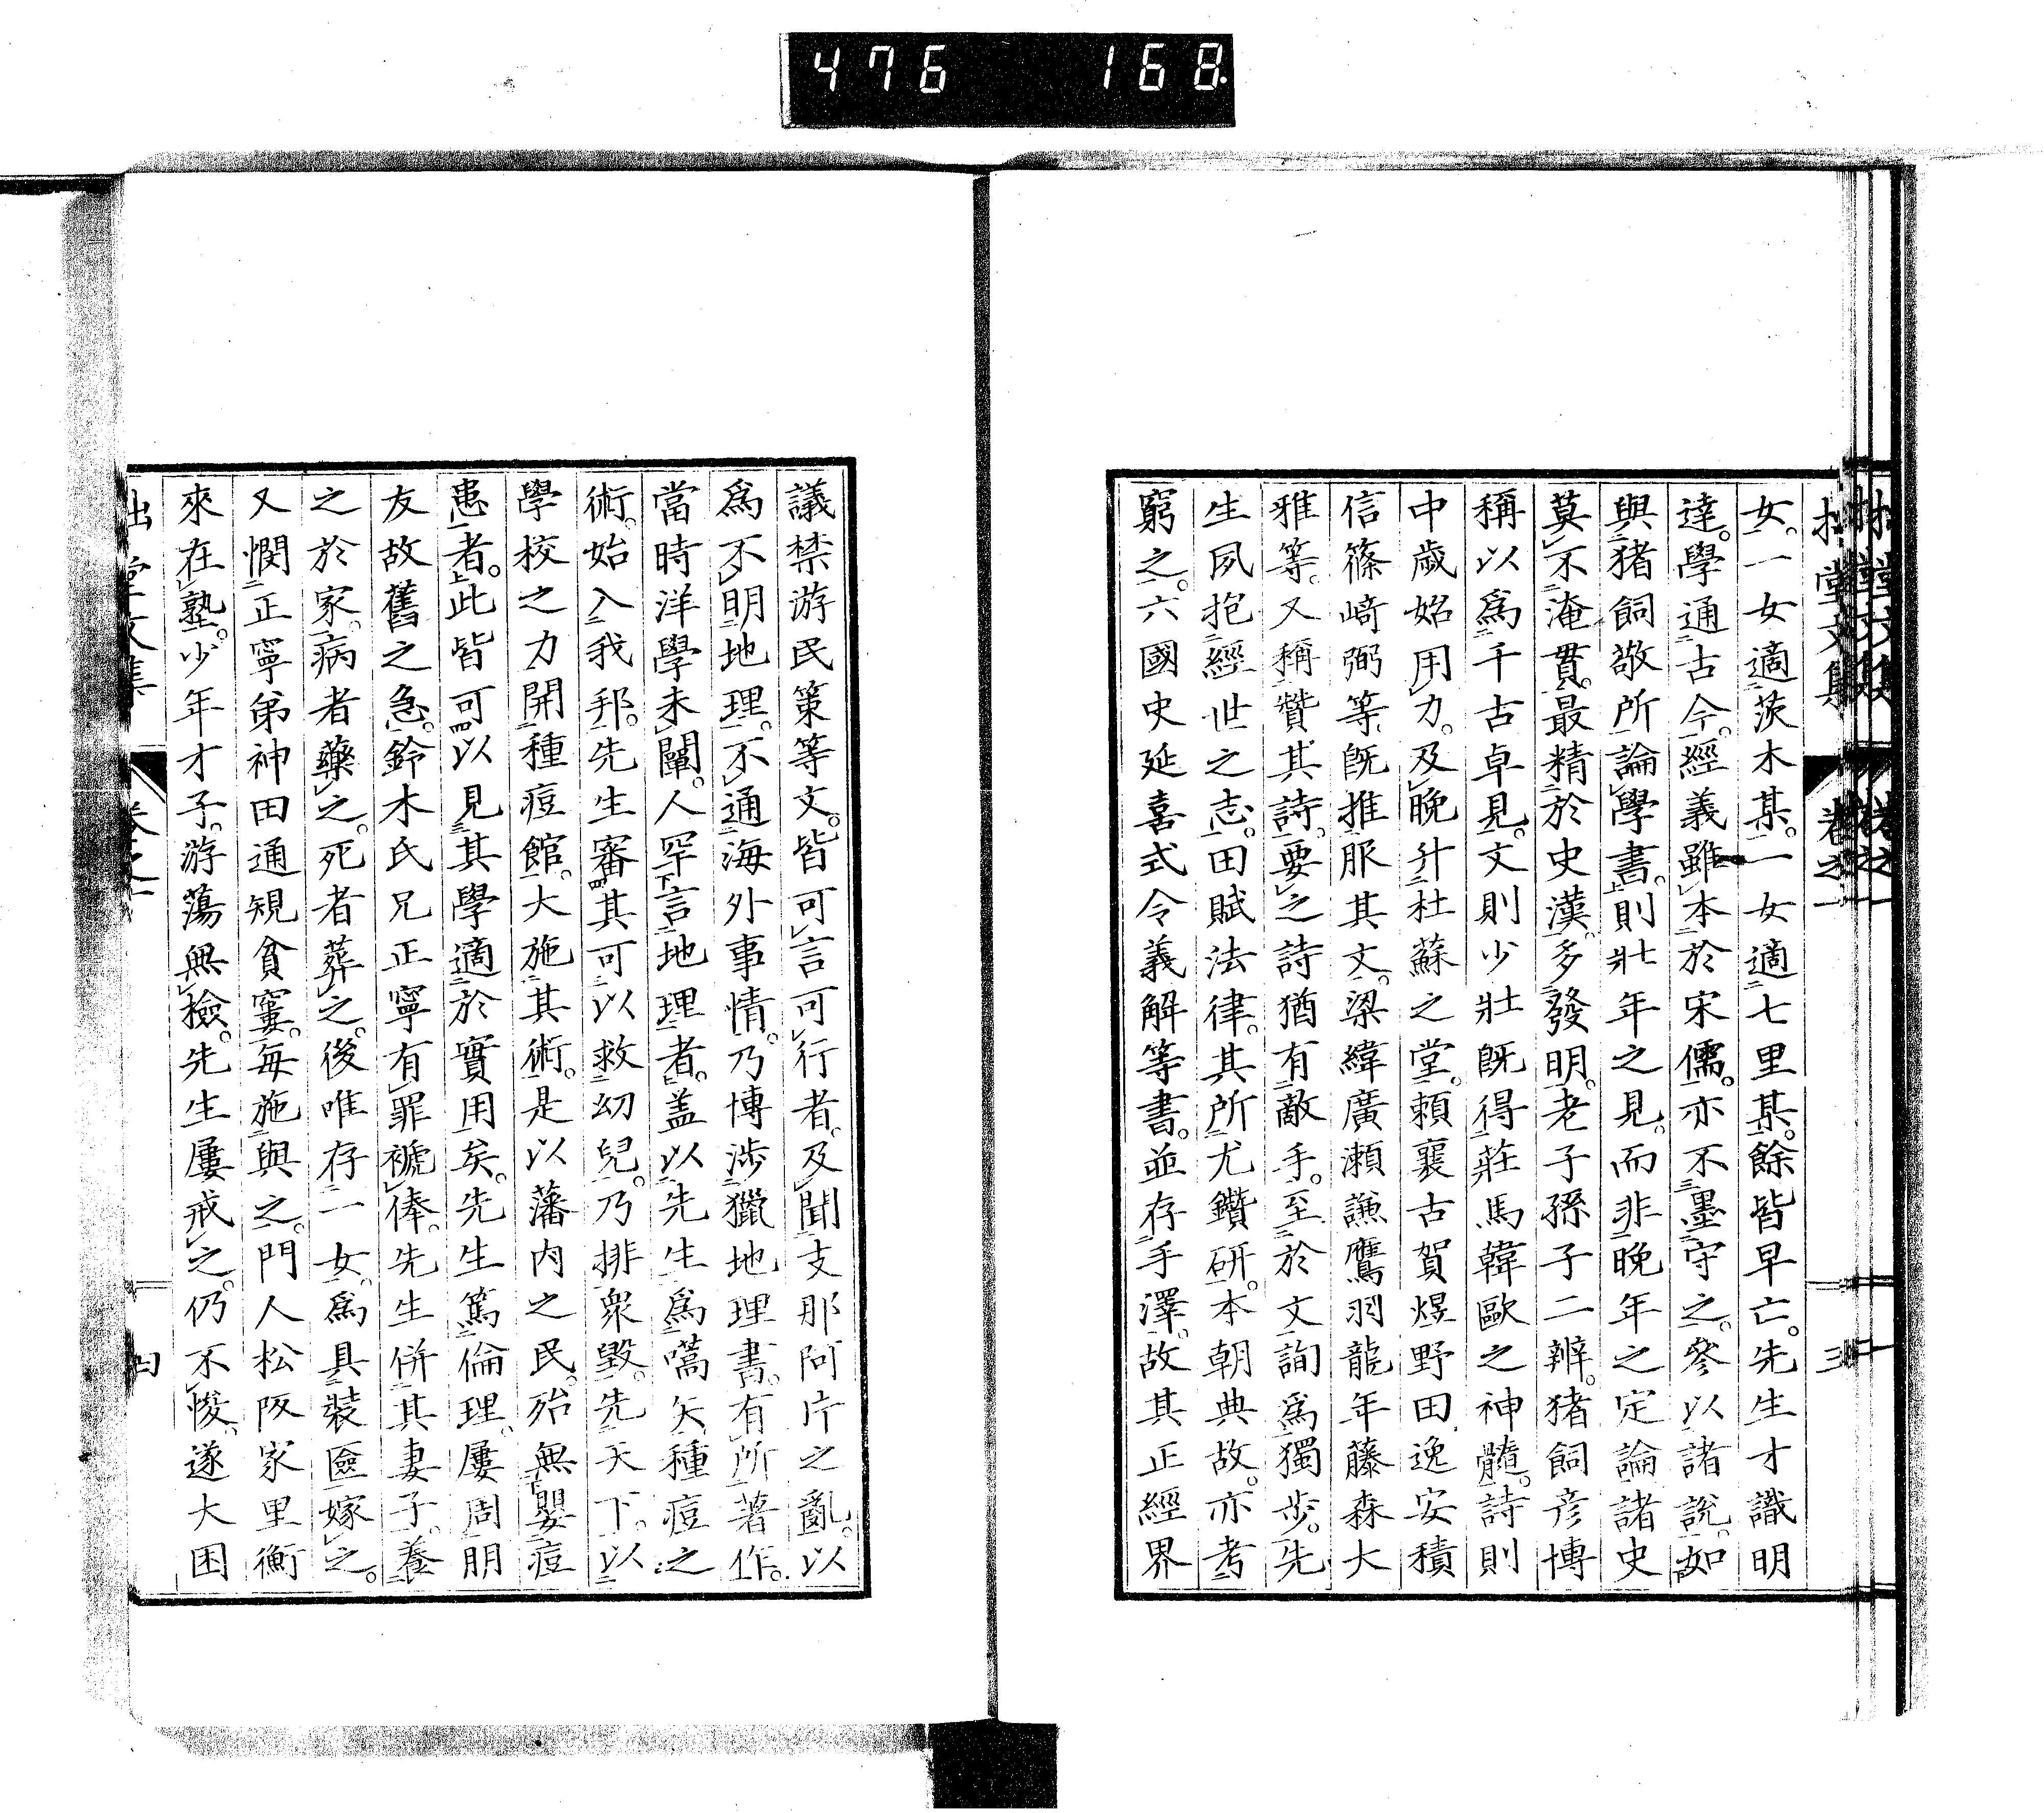 476 168
拙堂文集 卷之一 三
女。一女適茨木某。一女適七里某。餘皆早亡。先生才識明
達。學通古今。經義雖本於宋儒。亦不墨守之。參以諸說。如
與猪飼敬所論學書。則壯年之見。而非晚年之定論。諸史
莫不淹貫。最精於史漢。多發明。老子孫子二辨。猪飼彦博
稱以爲千古卓見。文則少壯既得莊馬韓歐之神髓。詩則
中歲始用力。及晚升杜蘇之堂。賴襄古賀煜野田逸安積
信篠崎弼等。既推服其文。梁緯廣瀬謙鷹羽龍年藤森大
雅等。又稱贊其詩。要之詩猶有敵手。至於文詢爲獨步。先
生夙抱經世之志。田賦法律。其所尤鑽研。本朝典故。亦考
窮之。六國史延喜式令義解等書。並存手澤。故其正經界
議禁游民策等文。皆可言可行者。及聞支那阿片之亂。以
爲不明地理。不通海外事情。乃博涉獵地理書。有所著作。
當時洋學未闡。人罕言地理者。蓋以先生爲嚆矢。種痘之
術。始入我邦。先生審其可以救幼兒。乃排衆毀。先天下。以
學校之力開種痘館。大施其術。是以藩内之民。殆無嬰痘
患者。此皆可以見其學適於實用矣。先生篤倫理。屢周朋
友故舊之急。鈴木氏兄正寧有罪褫俸。先生併其妻子。養
之於家。病者藥之。死者葬之。後唯存一女。爲具裝匳嫁之。
又憫正寧弟神田通規貧窶。每施與之。門人松阪家里衡
來在塾。少年才子。游蕩無檢。先生屢戒之。仍不悛。遂大困
拙堂文集 卷之一